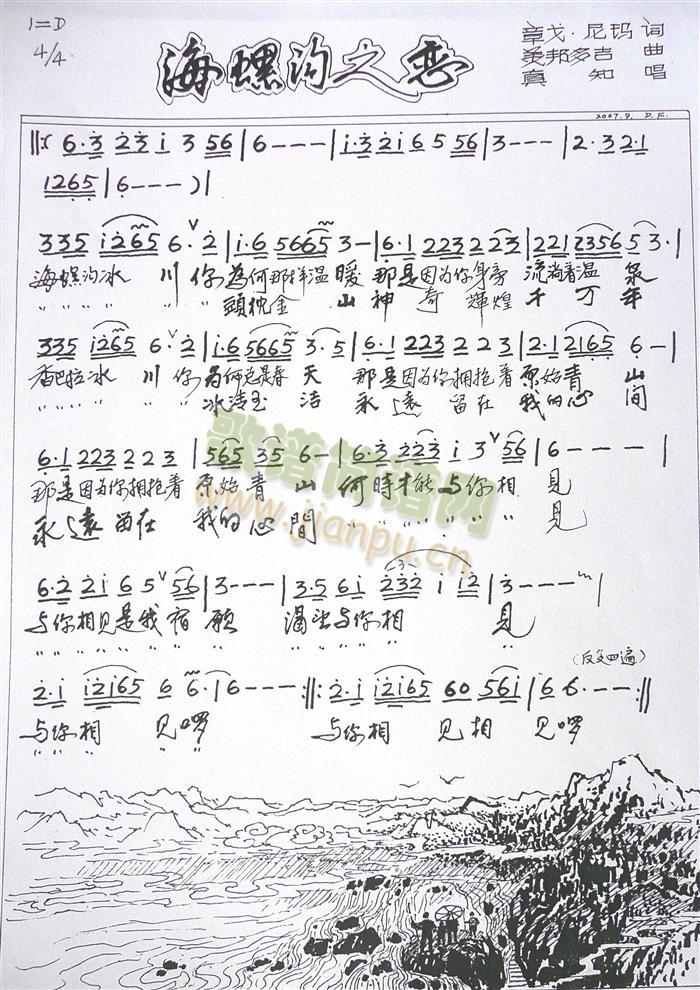 1=D
4/4
海螺沟之恋
章戈·尼玛 词
美邦多吉 曲
真知 唱
2007.9. D.F.
‖: 6·3 23 i 3 56 | 6 - - - | i·3 2i 6 5 56 | 3 - - - | 2·3 2·1
1265 | 6 - - - ) |
335 i265 6·V2 | i·6 56655 3 - | 6·1 223 2 23 | 221 2356 5 3· |
海螺沟冰 川 你 為何那样温 暖 那是因为你身旁 流淌着温 泉
〃 〃 〃 〃 〃 〃 頭枕金 山 神 奇 輝煌 千 万 年
335 i265 6·V2 | i·6 5665 3·5 | 6·1 223 2 2 3 | 2·1 2165 6 - |
香巴拉冰 川 你 為何总是春 天 那是因为你拥抱着 原始青 山
〃 〃 〃 〃 〃 〃 冰洁玉 洁 永 遠 留在 我的心 间
6·1 223 2 2 3 | 565 35 6 - | 6·3 223 i 3V56 | 6 - - - |
那是因为你拥抱着 原始青 山 何時才能 与你相 見
永 遠 留在 我的心 間 〃 〃 〃 〃 〃 〃 〃 見
6·2 2i 6 5V56 | 3 - - - | 3·5 6i 232 i i2 | 3 - - - |
与你相见是我宿 願 渴望与你相 見
2·i i2i65 6 6· | 6 - - - :‖: 2·i i2i65 60 56i | 6 6· - - :‖
(反复四遍)
与你相 见啰 与你相 见相 见啰
歌谱简谱网
www.jianpu.cn